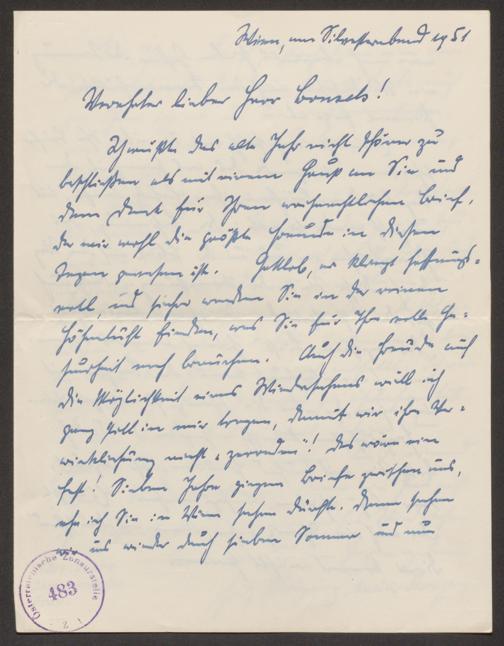 Wien, am Silvesterabend 1951
Verehrter lieber Herr Bonsels!
Ich wüßte das alte Jahr nicht schöner zu
beschließen als mit einem Gruß an Sie und
dem Dank für Ihren weihnachtlichen Brief,
der mir wohl die größte Freude in diesen
Tagen gewesen ist. Gottlob, er klingt hoffnungs-
voll, und sicher werden Sie in der reinen
Höhenluft finden, was Sie für Ihre volle Ge-
sundheit noch brauchen. Auch die Freude auf
die Möglichkeit eines Wiedersehens will ich
ganz still in mir tragen, damit wir ihre Ver-
wirklichung nicht "zerreden"! Das wäre ein
Fest! Sieben Jahre gingen Briefe zwischen uns,
ehe ich Sie in Wien sehen durfte. Dann sahen
wir uns wieder durch sieben Sommer und nun
Österreichische Zensurstelle
483